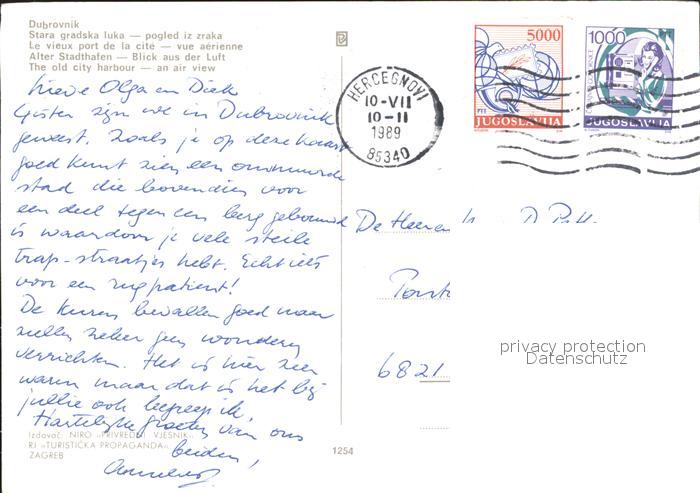 Dubrovnik
Stara gradska luka — pogled iz zraka
Le vieux port de la cité — vue aérienne
Alter Stadthafen — Blick aus der Luft
The old city harbour — an air view
Lieve Olga en Dick
Gister zijn we in Dubrovnik
geweest. Zoals je op deze kaart
goed kunt zien een ommuurde
stad die bovendien voor
een deel tegen een berg gebouwd
is waardoor je vele steile
trap-straatjes hebt. Echt iets
voor een rugpatient!
De kuren bevallen goed maar
zullen zeker geen wonderen
verrichten. Het is hier zeer
warm maar dat is het bij
jullie ook begreep ik.
Hartelijke groeten van ons
beiden,
Izdavač: NIRO »PRIVREDNI VJESNIK«
RJ »TURISTIČKA PROPAGANDA«
ZAGREB
1254
HERCEGNOVI
10-VII
10-11
1989
85340
5000
PTT
JUGOSLAVIJA
1000
JUGOSLAVIJA
De Heer en
6821
privacy protection
Datenschutz